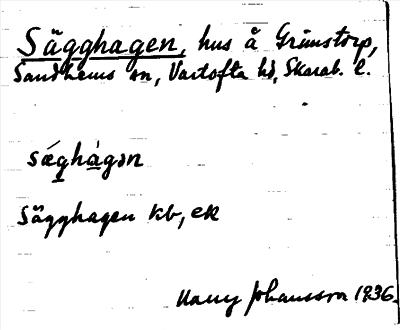 Sägghagen, hus å Grimstorp,
Sandhems sn, Vartofta hd, Skarab. l.
sǽghàgən
Sägghagen kb, ek
Harry Johansson 1936.